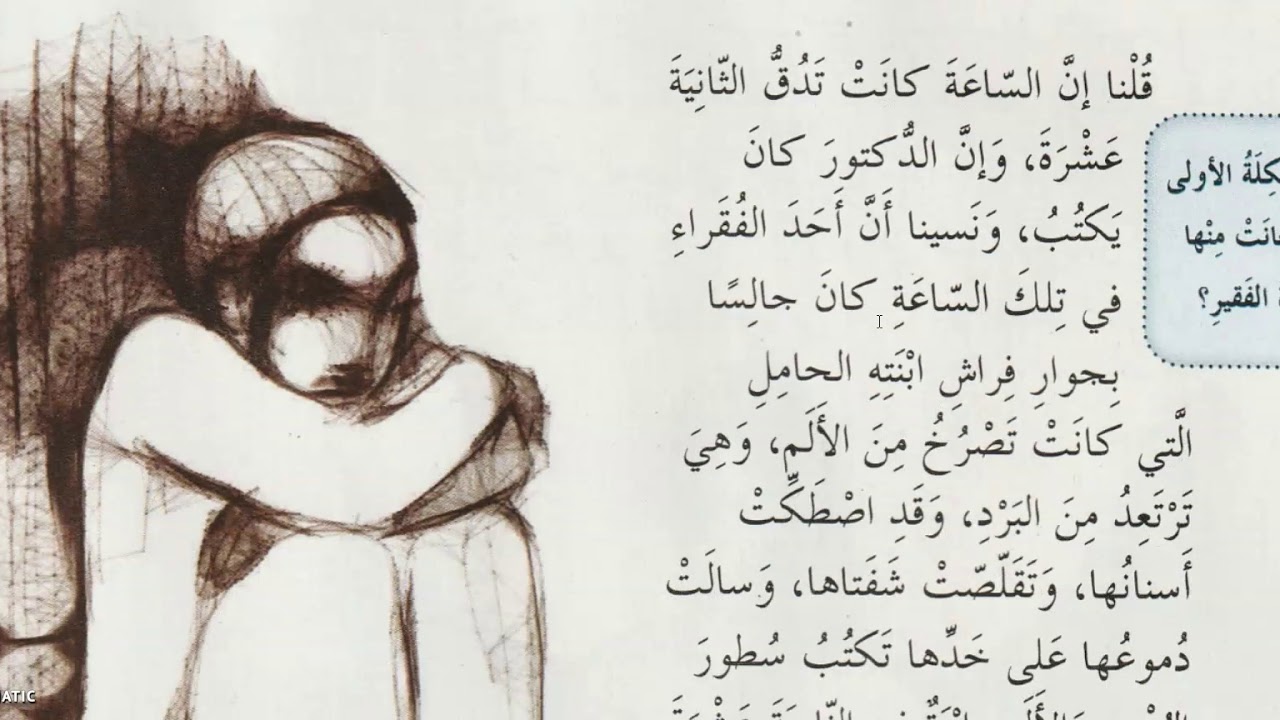 قُلْنا إنَّ السّاعَةَ كانَتْ تَدُقُّ الثّانِيَةَ
عَشْرَةَ، وَإنَّ الدُّكتورَ كانَ
يَكتُبُ، وَنَسينا أَنَّ أَحَدَ الفُقَراءِ
في تِلكَ السّاعَةِ كانَ جالِسًا
بِجوارِ فِراشِ ابْنَتِهِ الحامِلِ
الَّتي كانَتْ تَصْرُخُ مِنَ الأَلَمِ، وَهِيَ
تَرْتَعِدُ مِنَ البَرْدِ، وَقَدِ اصْطَكَّتْ
أَسنانُها، وَتَقَلَّصّتْ شَفَتاها، وَسالَتْ
دُموعُها عَلى خَدِّها تَكتُبُ سُطورَ
الأولى
مِنْها
الفَقيرِ؟
ATIC